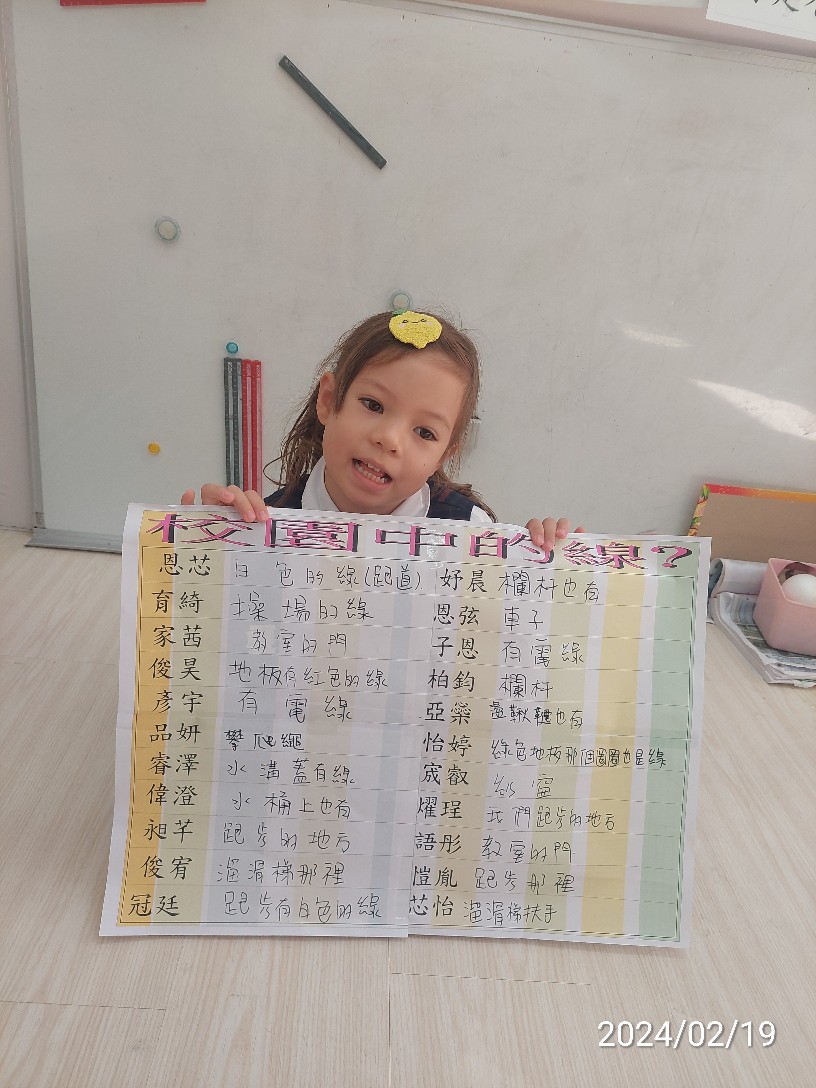 校園中的線？
恩芯 白色的線(跑道)
育綺 操場的線
家茜 教室的門
俊昊 地板有紅色的線
彥宇 有電線
品妍 攀爬繩
睿澤 水溝蓋有線
偉澄 水桶上也有
昶芊 跑步的地方
俊宥 溜滑梯那裡
冠廷 跑步有白色的線
妤晨 欄杆也有
恩弦 車子
子恩 有電線
柏鈞 欄杆
亞燊 盪鞦韆也有
怡婷 綠色地板那個圈圈也是線
宬叡
燿珵 我們跑步的地方
語彤 教室的門
愷胤 跑步那裡
芯怡 溜滑梯扶手
2024/02/19